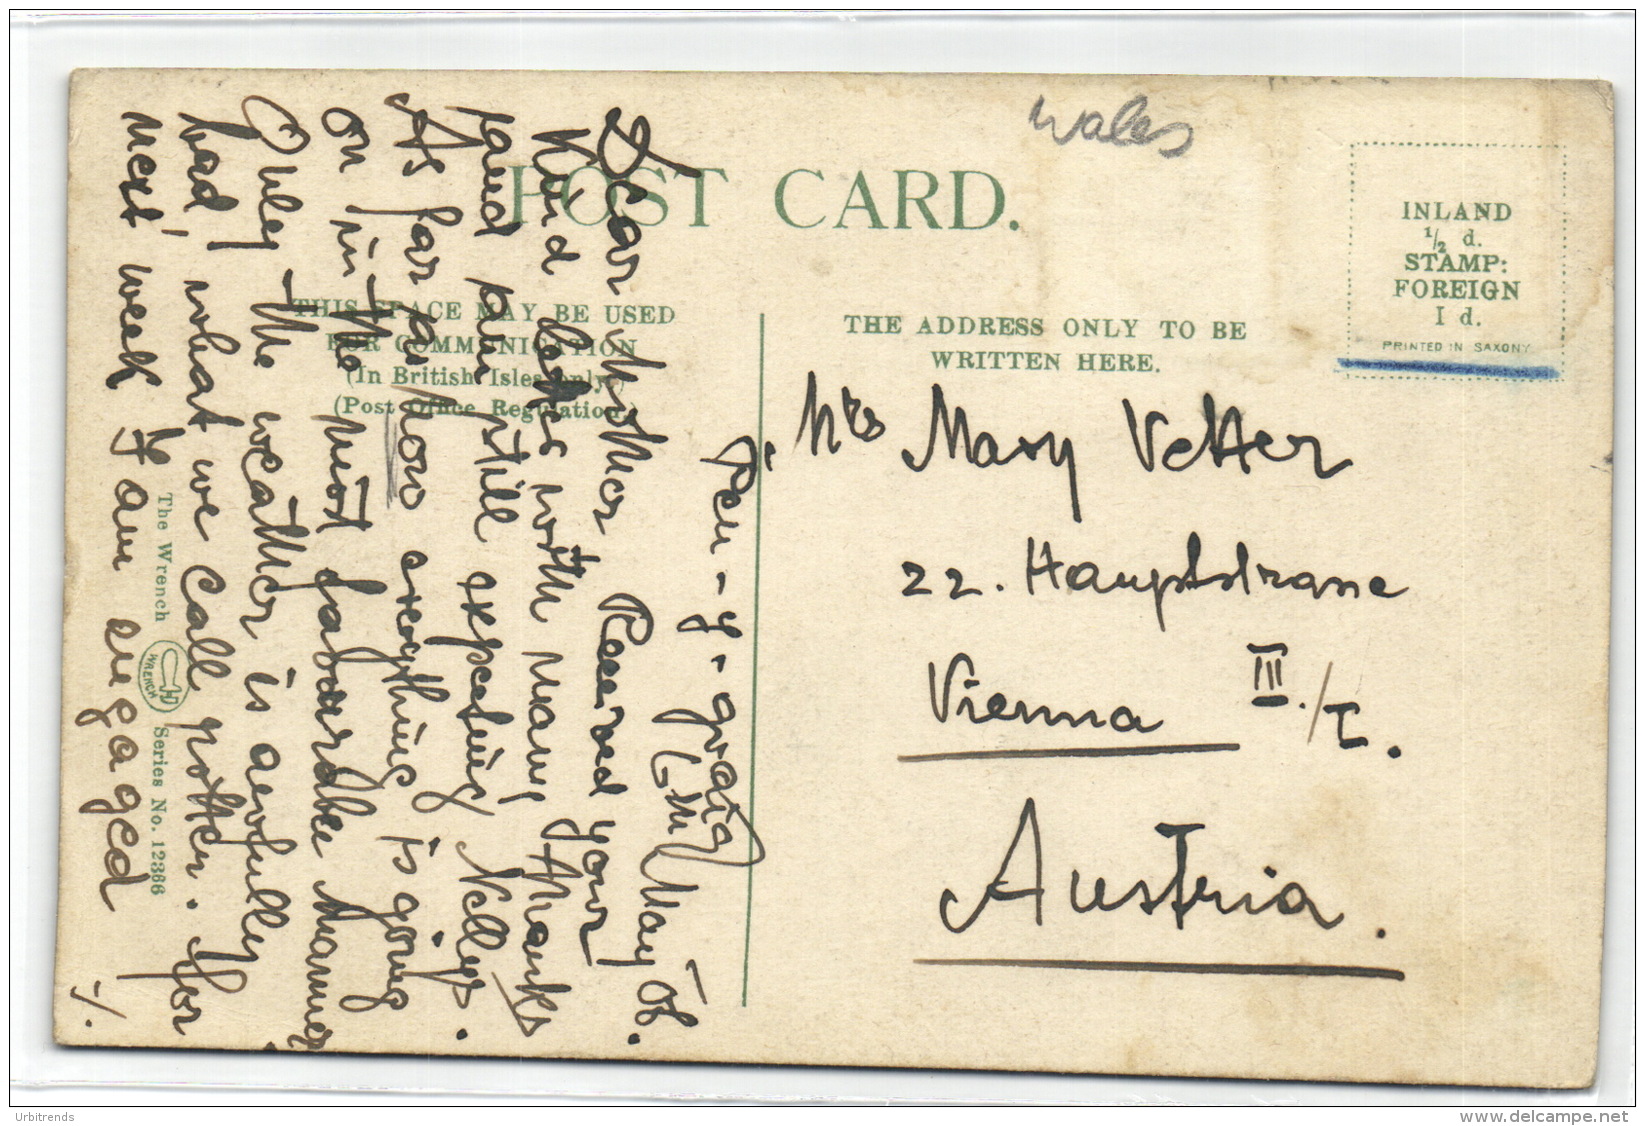 wales
POST CARD.
INLAND
1/2 d.
STAMP:
FOREIGN
I d.
PRINTED IN SAXONY
THIS SPACE MAY BE USED
FOR COMMUNICATION
(In British Isles only.)
(Post Office Regulation.)
THE ADDRESS ONLY TO BE
WRITTEN HERE.
Mrs Mary Vetter
22. Hauptstrasse
Vienna III./I.
Austria.
Pen-y-graig
May 08.
Dear Mother Received your
Kind letter with many thanks
and am still expecting Nellys.
As far as now everything is going
on in the most favourable manner
Only the weather is awfully
bad, what we call rotten. For
next week I am engaged
./.
The Wrench WRENCH Series No. 12386
Urbitrends
www.delcampe.net